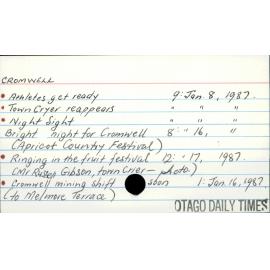 CROMWELL
• Athletes get ready 9: Jan. 8, 1987.
• Town Cryer reappears " " "
• Night Sight " " "
Bright night for Cromwell 8: " 16, "
(Apricot Country Festival)
• Ringing in the fruit festival 12: " 17, 1987.
(Mr Gibson, town Crier - photo.)
• Cromwell mining shift soon 1: Jan. 16, 1987
(to Melmore Terrace)
OTAGO DAILY TIMES